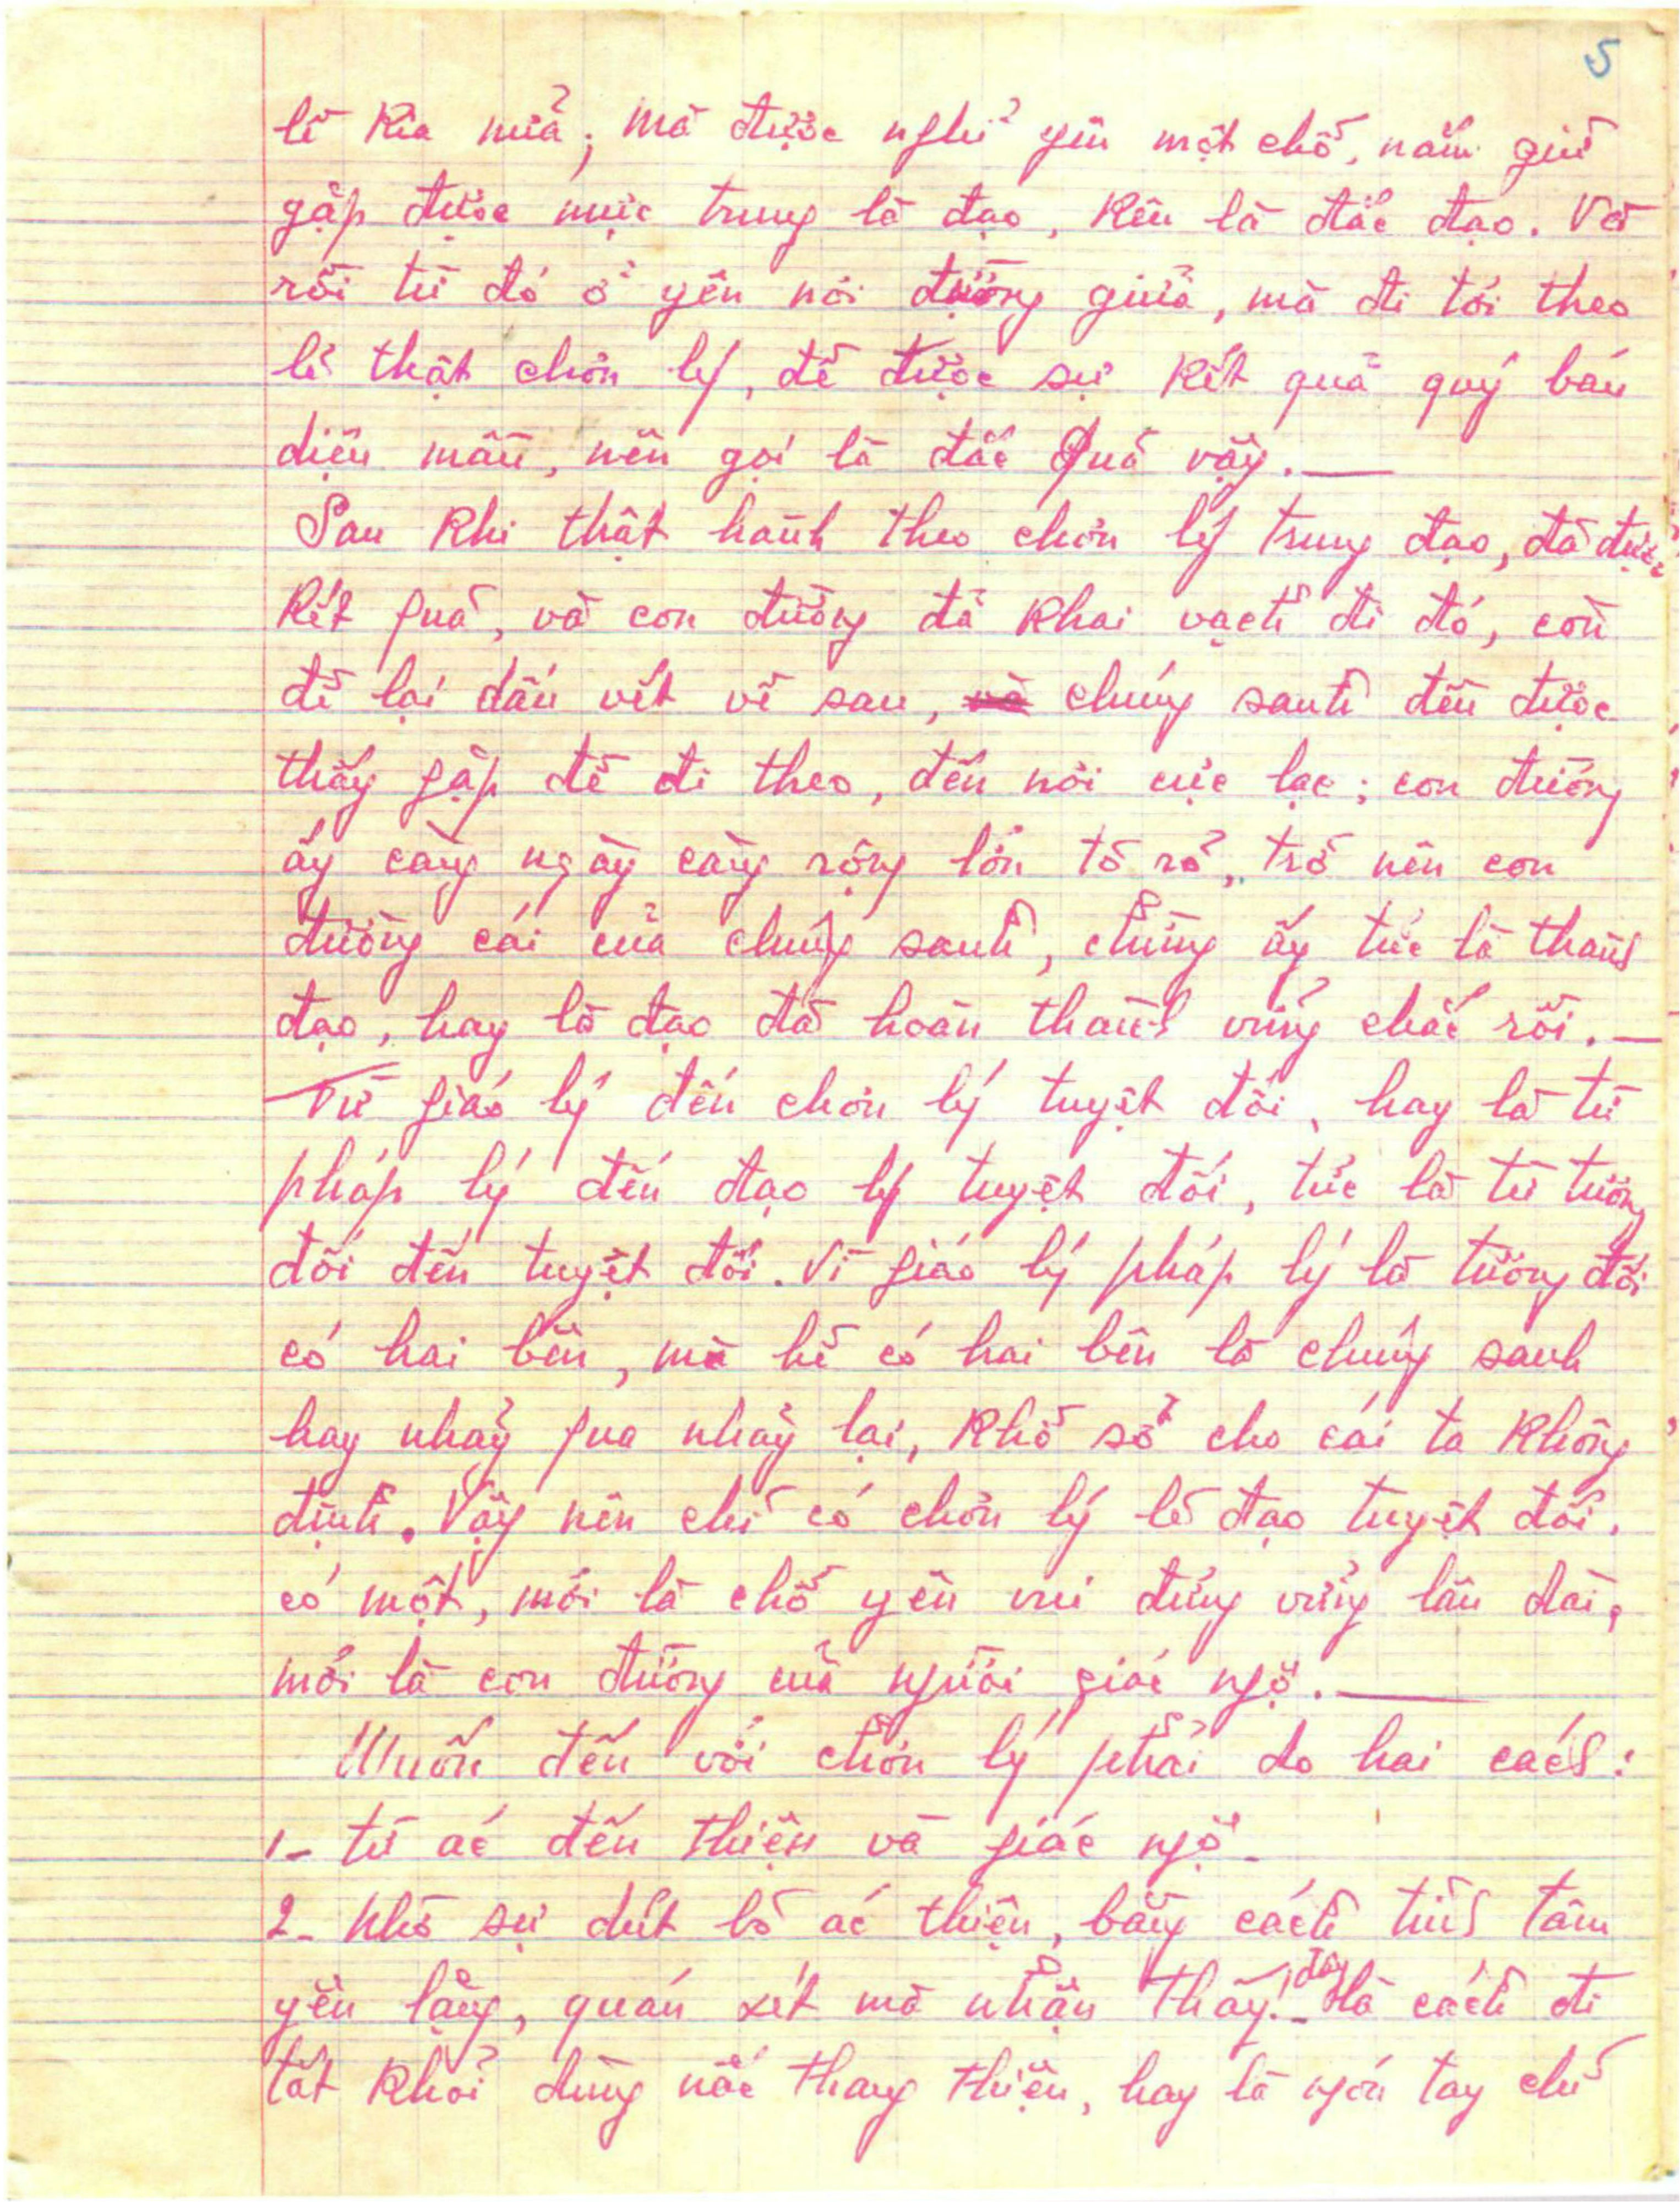 5
lẽ kia nữa; mà được nghỉ yên một chỗ, nắm giữ
gặp được mực trung là đạo, kêu là đắc đạo. Và
rồi từ đó ở yên nơi đường giữa, mà đi tới theo
lẽ thật chơn lý, để được sự kết quả quý báu
diệu mầu, nên gọi là đắc Quả vậy.
Sau khi thật hành theo chơn lý trung đạo, đã được
kết quả, và con đường đã khai vạch đi đó, còn
để lại dấu vết về sau, chúng sanh đến được
thấy gặp để đi theo, đến nơi cực lạc; con đường
ấy càng ngày càng rộng lớn tỏ rõ, trở nên con
đường cái của chúng sanh, chừng ấy tức là thành
đạo, hay là đạo đã hoàn thành vững chắc rồi.
Từ giáo lý đến chơn lý tuyệt đối, hay là từ
pháp lý đến đạo lý tuyệt đối, tức là từ tương
đối đến tuyệt đối. Vì giáo lý pháp lý là tương đối
có hai bên, mà hễ có hai bên là chúng sanh
hay nhảy qua nhảy lại, khổ sở cho cái ta không
định. Vậy nên chỉ có chơn lý lẽ đạo tuyệt đối,
có một, mới là chỗ yên vui đứng vững lâu dài,
mới là con đường của người giác ngộ.
Muốn đến với chơn lý phải do hai cách:
1- từ ác đến thiện và giác ngộ.
2- Nhờ sự dứt bỏ ác thiện, bằng cách tịnh tâm
yên lặng, quán xét mà nhận thấy. đây là cách đi
tắt khỏi dùng nấc thang thiện, hay là ngón tay chỉ